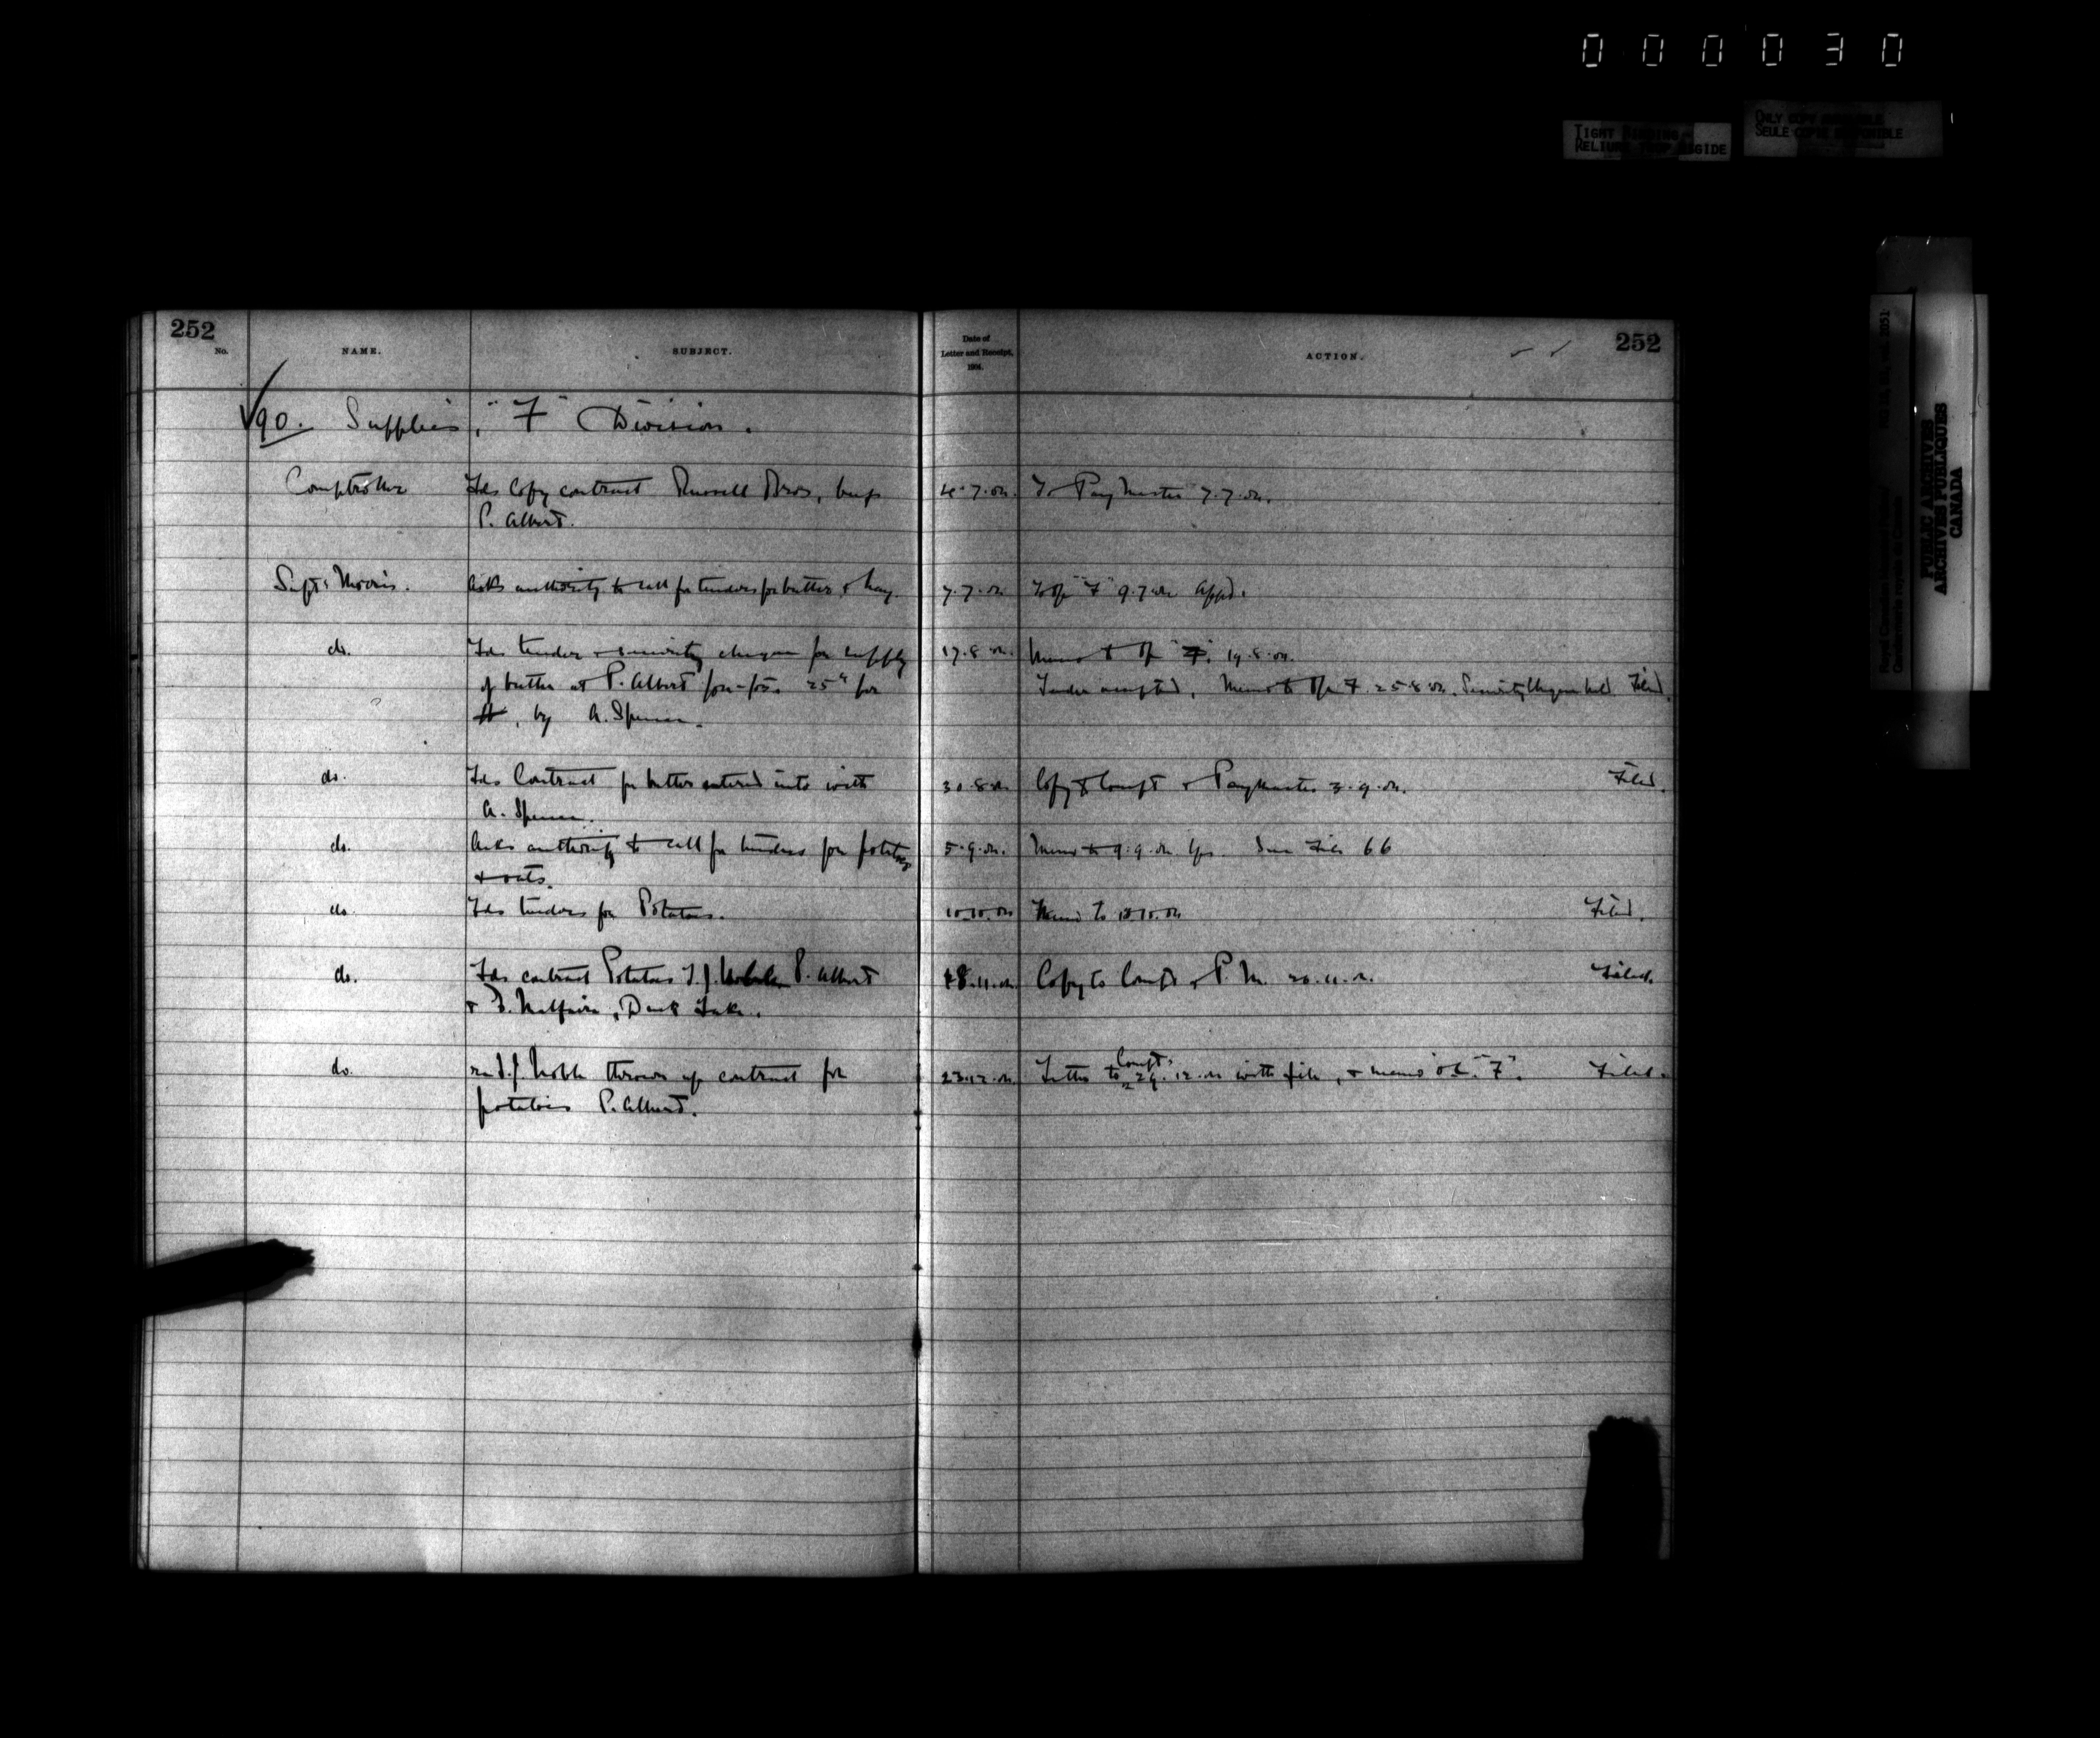 000030
TIGHT BINDING
RELIURE TROP RIGIDE
ONLY COPY AVAILABLE
SEULE COPIE DISPONIBLE
PUBLIC ARCHIVES
ARCHIVES PUBLIQUES
CANADA
252
No.
NAME.
SUBJECT.
Date of
Letter and Receipt,
1904.
ACTION.
252
90. Supplies, "F" Division.
Comptroller Fds Copy contract Russell Bros, beef 4.7.04. To Paymaster 7.7.04.
P. Albert.
Supt. Morris. Asks authority to call for tenders for butter & hay. 7.7.04 "F" 9.7.04 appd.
do. Fds tender & security cheque for supply 17.8.04. Memo to Off "F". 19.8.04.
of butter at P. Albert 25¢ per Tender accepted, Memo to Off F. 25.8.04. Security cheque held. Filed.
lb, by A. Spencer.
do. Fds Contract for butter entered into with 30.8.04 Copy to Compt & Paymaster 3.9.04. Filed.
A. Spencer.
do. Asks authority to call for tenders for potatoes 5.9.04. Memo to 9.9.04. See File 66
& oats.
do. Fds tenders for Potatoes. 10.10.04 Memo to 04 Filed.
do. Fds contract Potatoes T.J. Noble P. Albert 18.11.04 Copy to Compt & P.M. 20.11.04. Filed.
& D. Duck Lake.
do. re T.J. Noble throwing up contract for 23.12.04 Letter to Compt. 29.12.04 with file, & memo "F". Filed.
potatoes P. Albert.